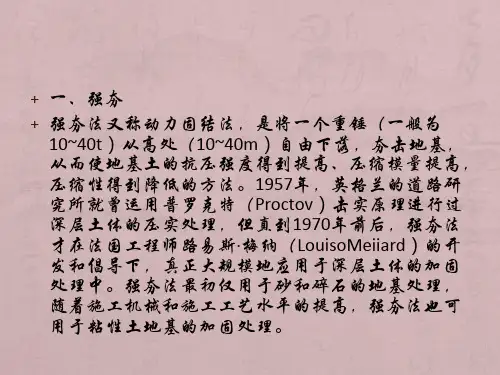 + 一、强夯
+ 强夯法又称动力固结法，是将一个重锤（一般为
10~40t）从高处（10~40m）自由下落，夯击地基，
从而使地基土的抗压强度得到提高、压缩模量提高，
压缩性得到降低的方法。1957年，英格兰的道路研
究所就曾运用普罗克特（Proctov）击实原理进行过
深层土体的压实处理，但直到1970年前后，强夯法
才在法国工程师路易斯·梅纳（LouisoMeiiard）的开
发和倡导下，真正大规模地应用于深层土体的加固
处理中。强夯法最初仅用于砂和碎石的地基处理，
随着施工机械和施工工艺水平的提高，强夯法也可
用于粘性土地基的加固处理。